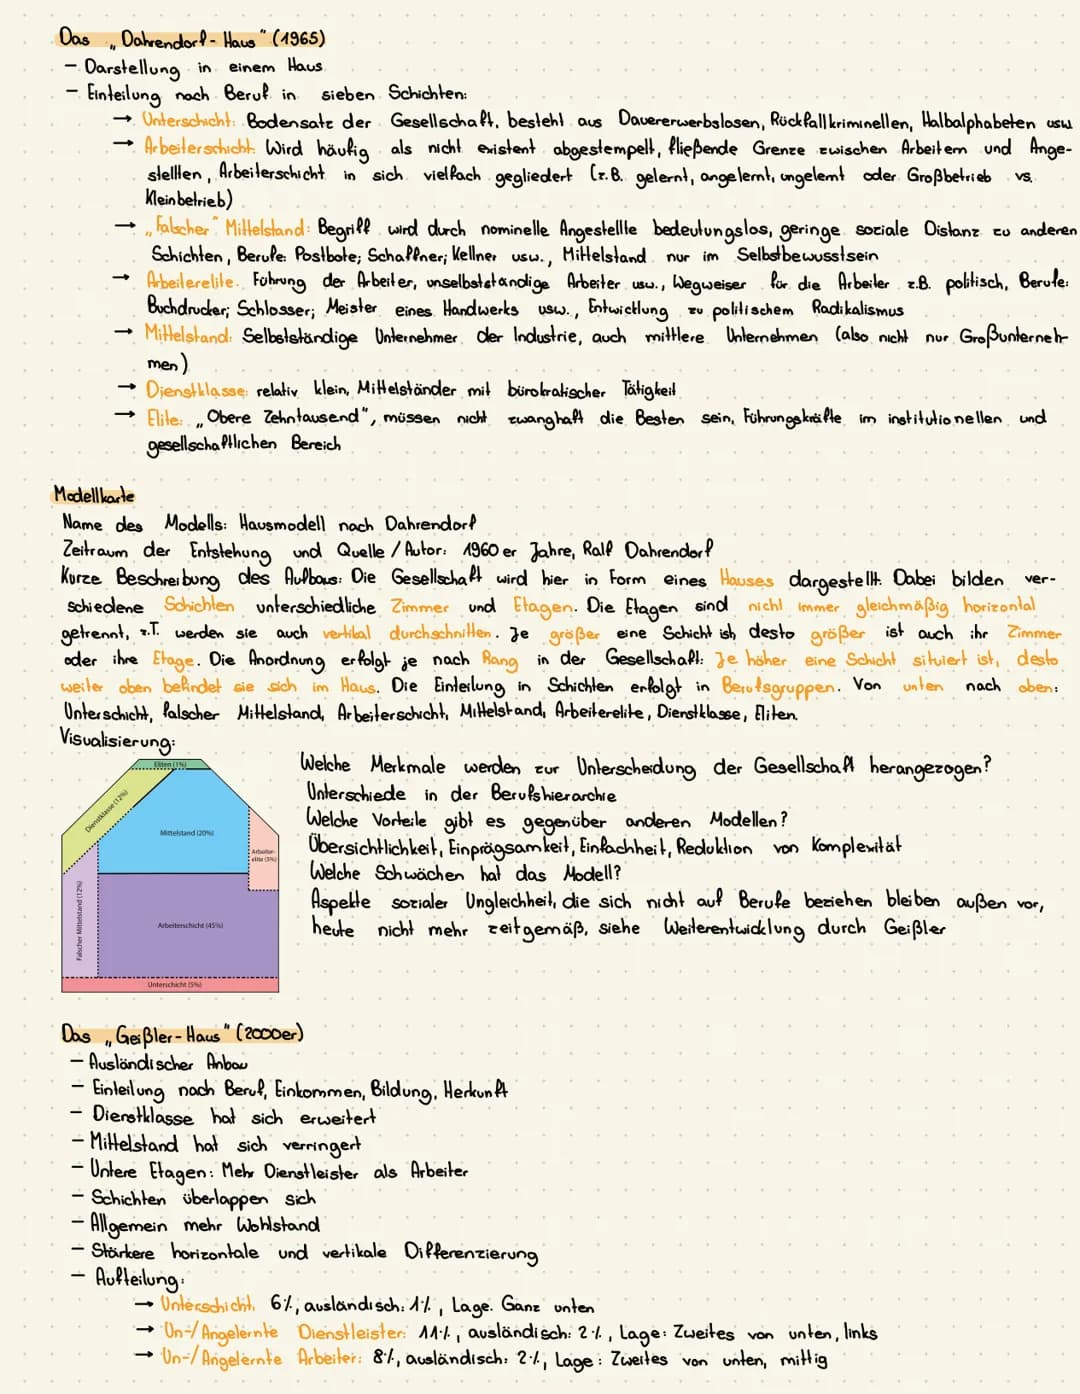 Das „Dahrendorf-Haus" (1965)
- Darstellung in einem Haus
- Einteilung nach Beruf in sieben Schichten:
→ Unterschicht: Bodensatz der Gesellschaft, besteht aus Dauererwerbslosen, Rückfallkriminellen, Halbalphabeten usw
→ Arbeiterschicht: Wird häufig als nicht existent abgestempelt, fließende Grenze zwischen Arbeitern und Ange-
stellten, Arbeiterschicht in sich vielfach gegliedert (z.B. gelernt, angelernt, ungelernt oder Großbetrieb vs.
Kleinbetrieb)
→ „Falscher" Mittelstand: Begriff wird durch nominelle Angestellte bedeutungslos, geringe soziale Distanz zu anderen
Schichten, Berufe: Postbote; Schaffner; Kellner usw., Mittelstand nur im Selbstbewusstsein
→ Arbeiterelite: Führung der Arbeiter, unselbstständige Arbeiter usw., Wegweiser für die Arbeiter z.B. politisch, Berufe:
Buchdrucker; Schlosser; Meister eines Handwerks usw., Entwicklung zu politischem Radikalismus
→ Mittelstand: Selbstständige Unternehmer der Industrie, auch mittlere Unternehmen (also nicht nur Großunterneh-
men)
→ Dienstklasse: relativ klein, Mittelständer mit bürokratischer Tätigkeit
→ Elite: „Obere Zehntausend", müssen nicht zwanghaft die Besten sein, Führungskräfte im institutionellen und
gesellschaftlichen Bereich
Modellkarte
Name des Modells: Hausmodell nach Dahrendorf
Zeitraum der Entstehung und Quelle/Autor: 1960er Jahre, Ralf Dahrendorf
Kurze Beschreibung des Aufbaus: Die Gesellschaft wird hier in Form eines Hauses dargestellt. Dabei bilden ver-
schiedene Schichten unterschiedliche Zimmer und Etagen. Die Etagen sind nicht immer gleichmäßig horizontal
getrennt, z.T. werden sie auch vertikal durchschnitten. Je größer eine Schicht ist, desto größer ist auch ihr Zimmer
oder ihre Etage. Die Anordnung erfolgt je nach Rang in der Gesellschaft: Je höher eine Schicht situiert ist, desto
weiter oben befindet sie sich im Haus. Die Einteilung in Schichten erfolgt in Berufsgruppen. Von unten nach oben:
Unterschicht, falscher Mittelstand, Arbeiterschicht, Mittelstand, Arbeiterelite, Dienstklasse, Eliten.
Visualisierung:
Eliten (1%)
Dienstklasse (12%)
Mittelstand (20%)
Arbeiter-
elite (5%)
Falscher Mittelstand (12%)
Arbeiterschicht (45%)
Unterschicht (5%)
Welche Merkmale werden zur Unterscheidung der Gesellschaft herangezogen?
Unterschiede in der Berufshierarchie
Welche Vorteile gibt es gegenüber anderen Modellen?
Übersichtlichkeit, Einprägsamkeit, Einfachheit, Reduktion von Komplexität
Welche Schwächen hat das Modell?
Aspekte sozialer Ungleichheit, die sich nicht auf Berufe beziehen bleiben außen vor,
heute nicht mehr zeitgemäß, siehe Weiterentwicklung durch Geißler
Das „Geißler-Haus" (2000er)
- Ausländischer Anbau
- Einteilung nach Beruf, Einkommen, Bildung, Herkunft
- Dienstklasse hat sich erweitert
- Mittelstand hat sich verringert
- Untere Etagen: Mehr Dienstleister als Arbeiter
- Schichten überlappen sich
- Allgemein mehr Wohlstand
- Stärkere horizontale und vertikale Differenzierung
- Aufteilung:
→ Unterschicht: 6%, ausländisch: 1%, Lage: Ganz unten
→ Un-/Angelernte Dienstleister: 11%, ausländisch: 2%, Lage: Zweites von unten, links
→ Un-/Angelernte Arbeiter: 8%, ausländisch: 2%, Lage: Zweites von unten, mittig